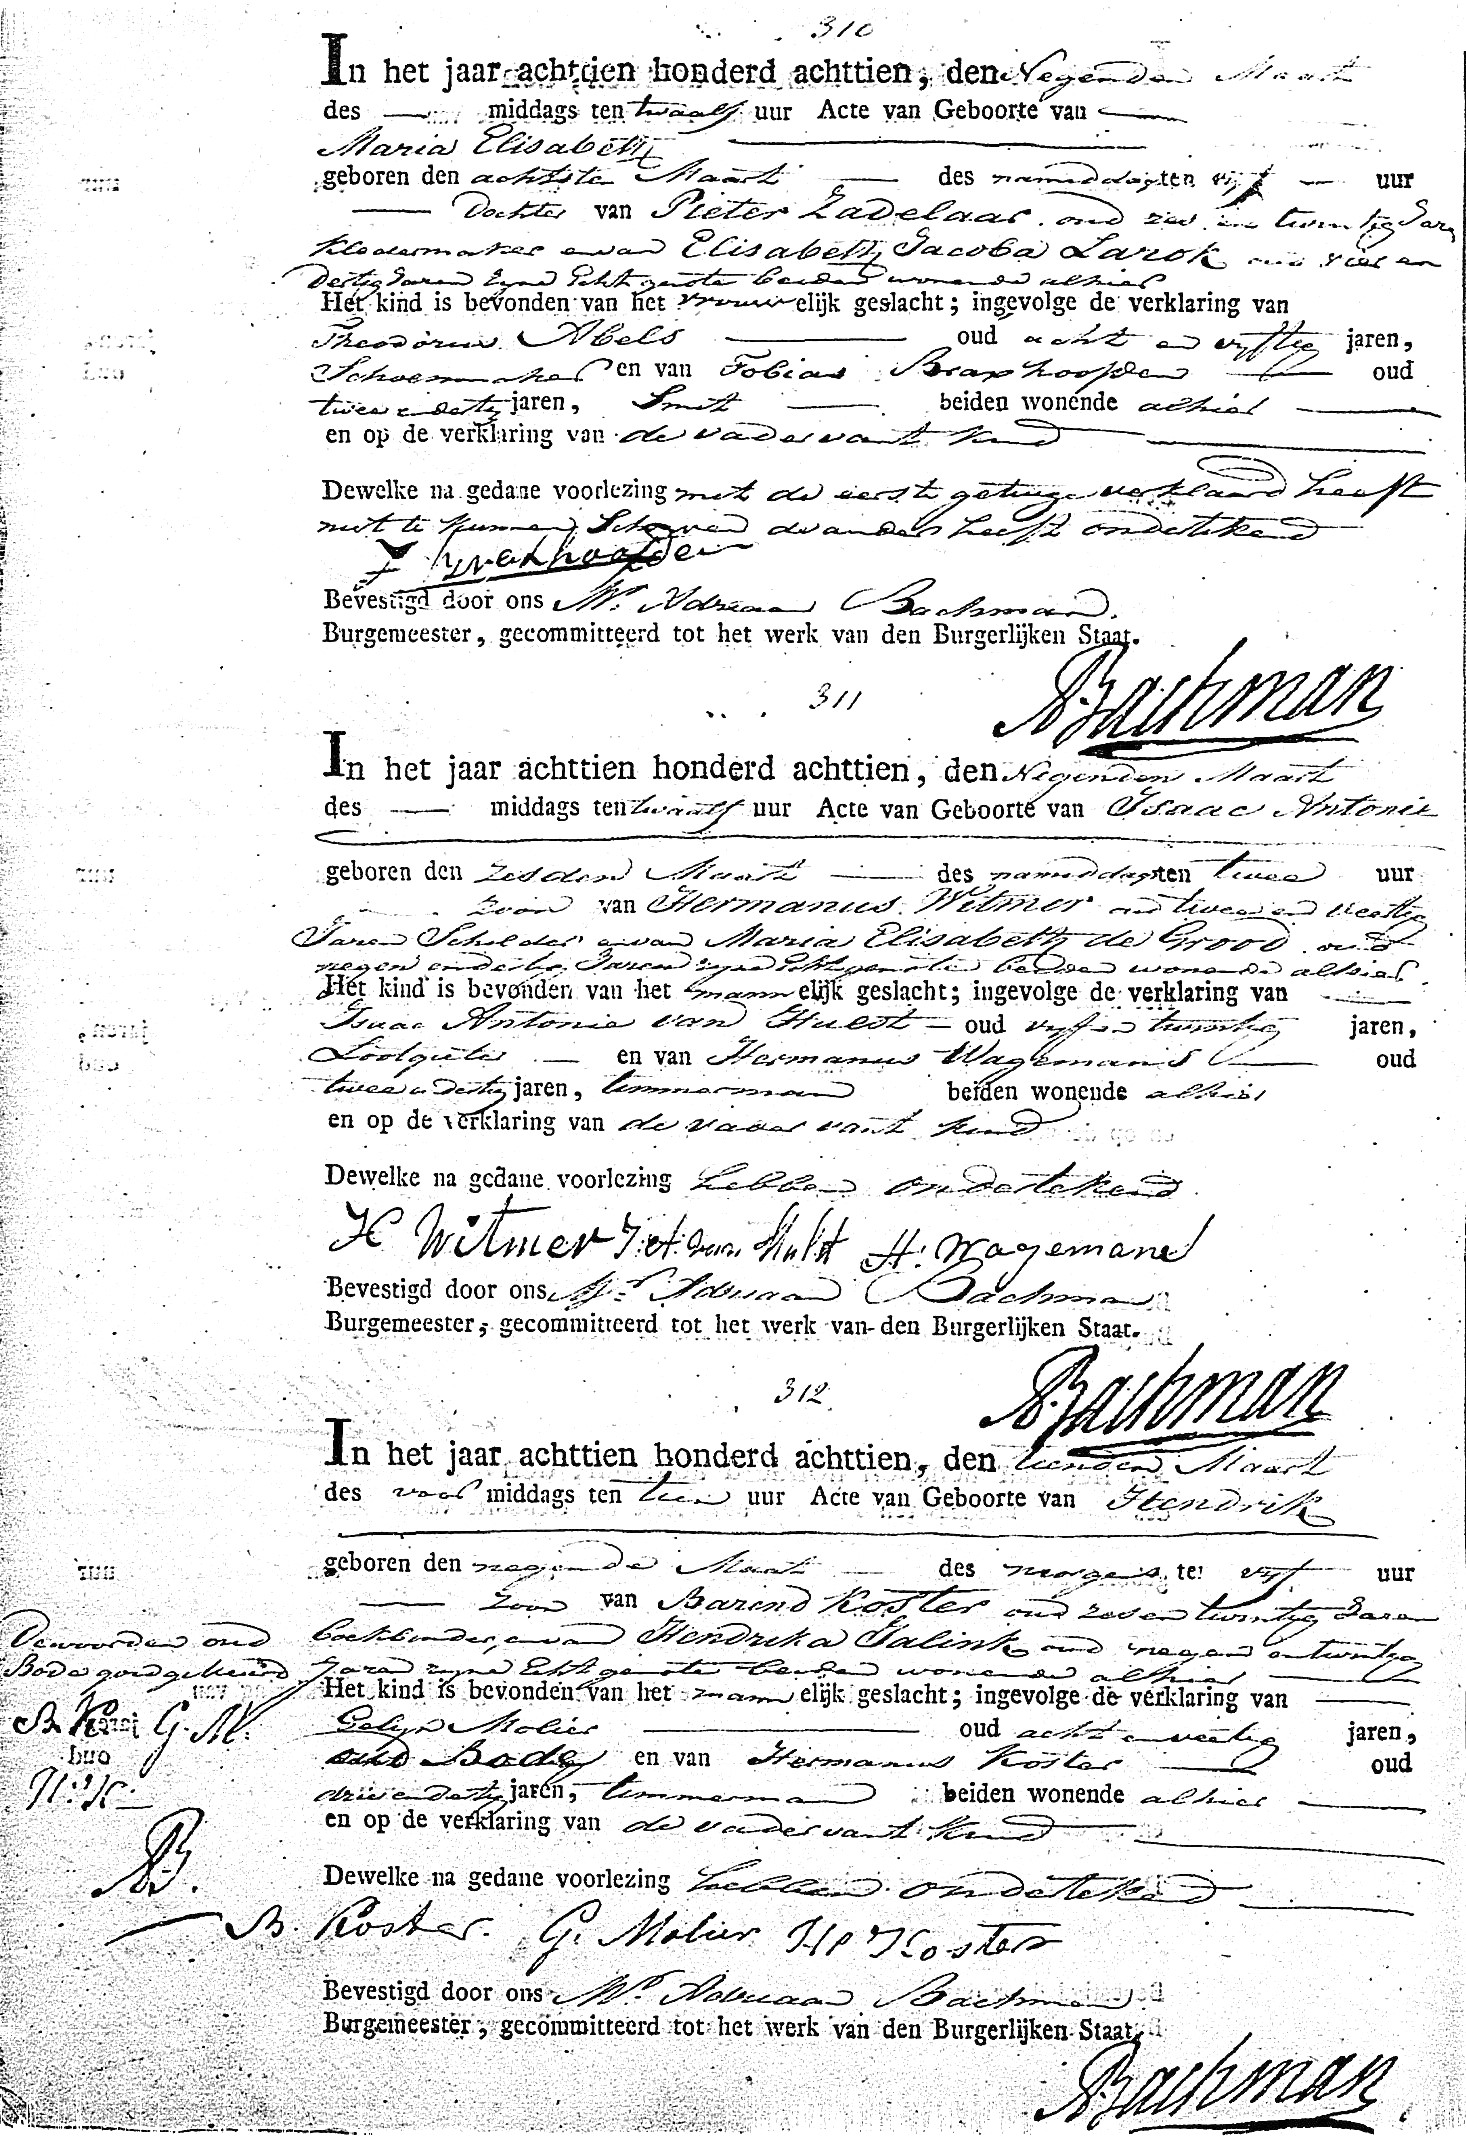 310
In het jaar achttien honderd achttien, den Negenden Maart
des — middags ten twaalf uur Acte van Geboorte van —
Maria Elisabeth
geboren den achtsten Maart — des namiddags ten vijf — uur
— Dochter van Pieter Zadelaar oud zes en twintig Jaren
Kledermaker en van Elisabeth Jacoba Larok oud vier en
dertig Jaren zyne Echtgenote beiden wonende alhier
Het kind is bevonden van het vrouwelijk geslacht; ingevolge de verklaring van
Theodorus Abels — oud acht en vyftig jaren,
Schoenmaker en van Tobias Braxhoofden — oud
twee en dertig jaren, Smit — beiden wonende alhier —
en op de verklaring van de vader van't kind —
Dewelke na gedane voorlezing met de eerste getuige verklaard heeft
niet te kunnen Schryven de ander heeft ondertekend
T Braxhoofden
Bevestigd door ons Mr. Adriaan Bachman.
Burgemeester, gecommitteerd tot het werk van den Burgerlijken Staat.
ABachman
311
In het jaar achttien honderd achttien, den Negenden Maart
des — middags ten twaalf uur Acte van Geboorte van Isaac Antonie
geboren den zesden Maart — des namiddags ten twee uur
zoon van Hermanus Witmer oud twee en veertig
Jaren Schilder en van Maria Elisabeth de Grood oud
negen en dertig Jaren zyne Echtgenote beiden wonende alhier
Het kind is bevonden van het mannelijk geslacht; ingevolge de verklaring van —
Isaac Antonie van Hulst — oud vyf en twintig jaren,
Loodgieter — en van Hermanus Wagemans — oud
twee en dertig jaren, timmerman beiden wonende alhier
en op de verklaring van de vader van't kind
Dewelke na gedane voorlezing hebben ondertekend
H Witmer I. A. van Hulst H: Wagemans
Bevestigd door ons Mr. Adriaan Bachman
Burgemeester, gecommitteerd tot het werk van den Burgerlijken Staat.
ABachman
312
In het jaar achttien honderd achttien, den tienden Maart
des voor middags ten tien uur Acte van Geboorte van Hendrik
geboren den negende Maart — des morgens ten vyf uur
— zoon van Barend Koster oud zes en twintig Jaren
boekbinder, en van Hendrika Jalink oud negen en twintig
Jaren zyne Echtgenote beiden wonende alhier —
Het kind is bevonden van het mannelijk geslacht; ingevolge de verklaring van —
Gelyn Molier — oud acht en veertig jaren,
oud Bode en van Hermanus Koster — oud
drie en dertig jaren, timmerman beiden wonende alhier —
en op de verklaring van de vader van't kind —
Dewelke na gedane voorlezing hebben ondertekend —
B. Koster. G. Molier Hs Koster
Bevestigd door ons Mr. Adriaan Bachman
Burgemeester, gecommitteerd tot het werk van den Burgerlijken Staat.
ABachman
De woorden oud
Bode goedgekeurd
B. K G. M.
H: K:
AB.